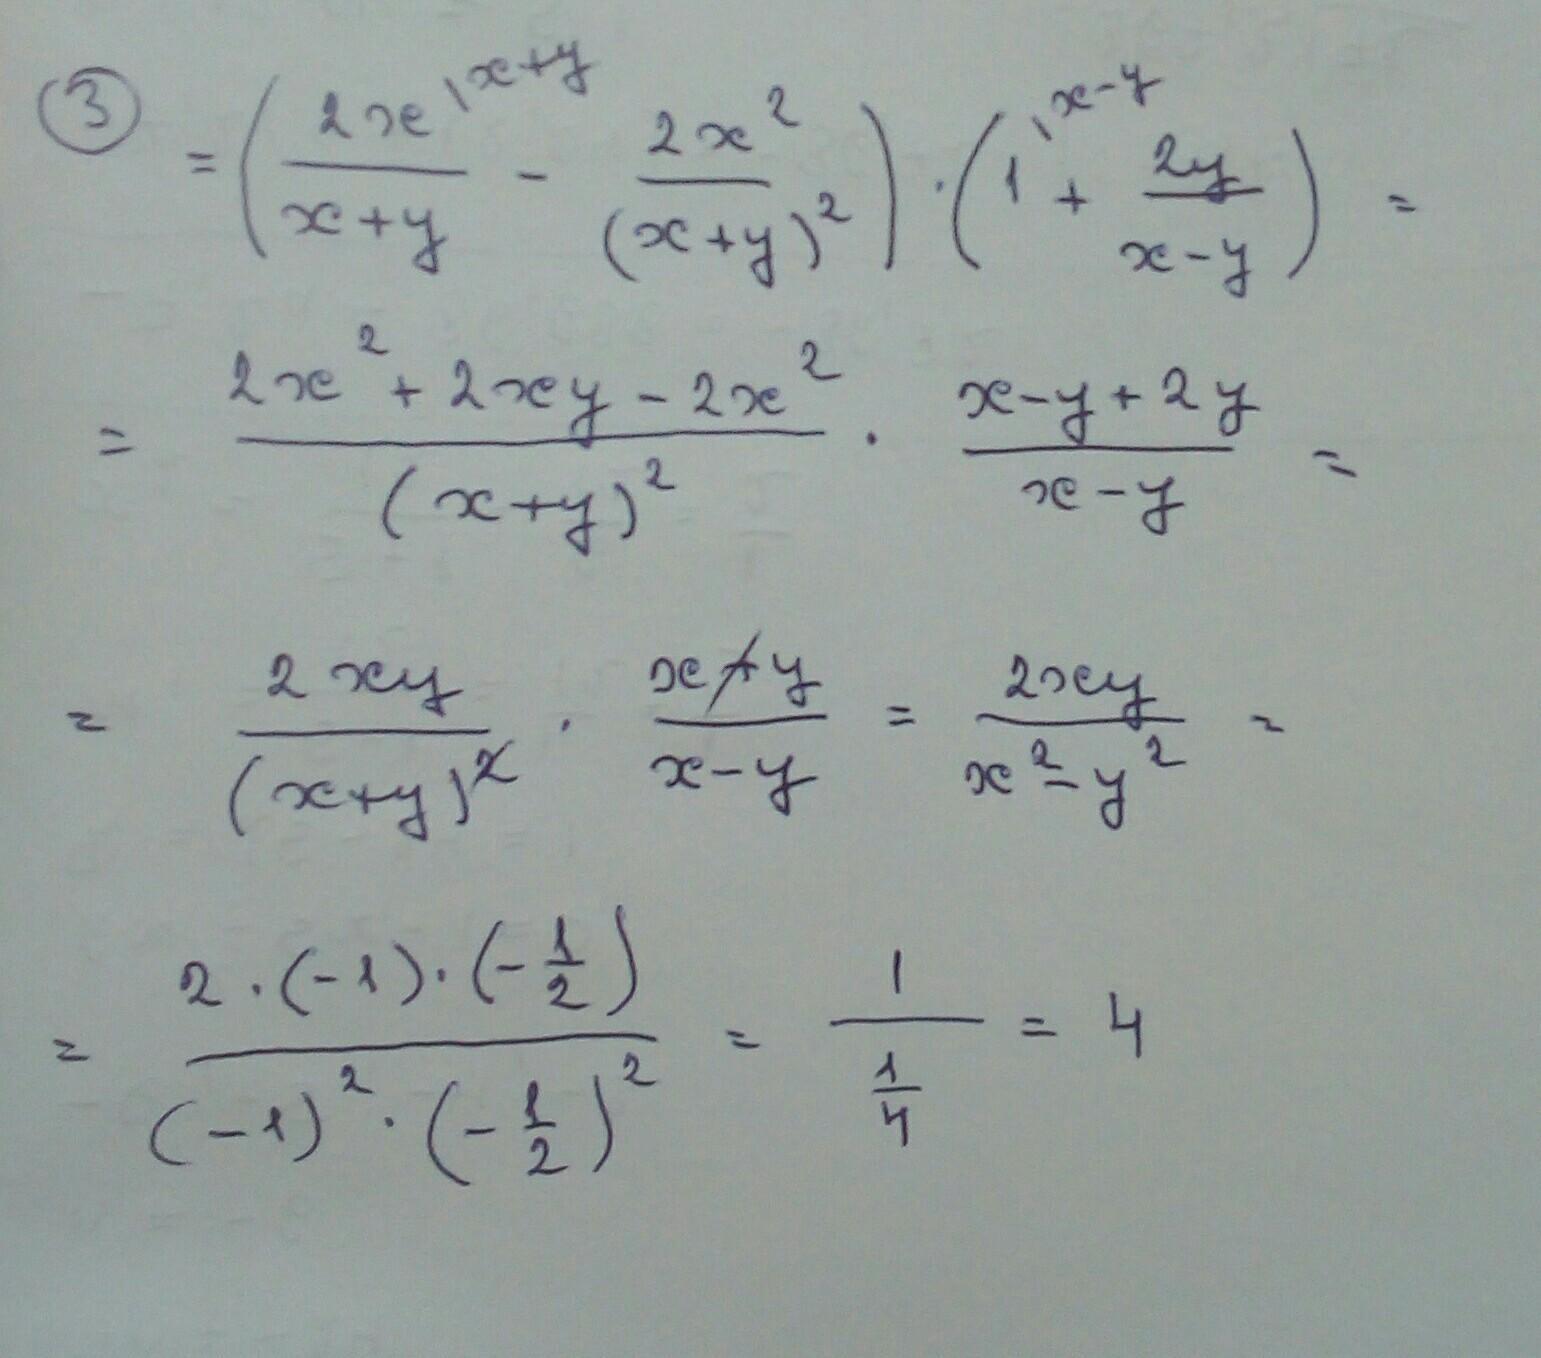 ③ = ( 2x^{\x+y} / (x+y) - 2x² / (x+y)² ) · ( 1^{\x-y} + 2y / (x-y) ) =
= (2x² + 2xy - 2x²) / (x+y)² · (x-y+2y) / (x-y) =
= 2xy / (x+y)² · (x+y) / (x-y) = 2xy / (x²-y²) =
= (2 · (-1) · (-1/2)) / ((-1)² · (-1/2)²) = 1 / (1/4) = 4